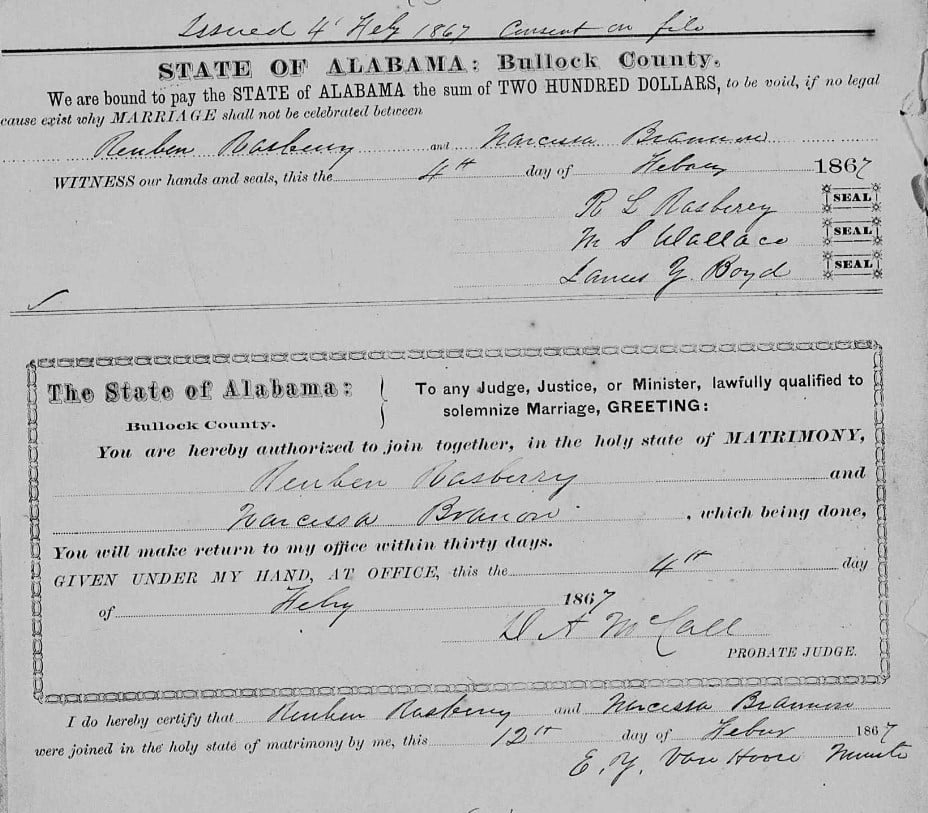 Issued 4' Feby 1867 Consent on file
STATE OF ALABAMA: Bullock County.
We are bound to pay the STATE of ALABAMA the sum of TWO HUNDRED DOLLARS, to be void, if no legal
cause exist why MARRIAGE shall not be celebrated between
Reuben Rasberry and Narcissa Brannon
WITNESS our hands and seals, this the 4th day of Febury 1867
R L Rasberry SEAL
M S Wallace SEAL
James Y Boyd SEAL
The State of Alabama: To any Judge, Justice, or Minister, lawfully qualified to
Bullock County. solemnize Marriage, GREETING:
You are hereby authorized to join together, in the holy state of MATRIMONY,
Reuben Rasberry and
Narcissa Branon , which being done,
You will make return to my office within thirty days.
GIVEN UNDER MY HAND, AT OFFICE, this the 4th day
of Feby 1867
D A McCall
PROBATE JUDGE.
I do hereby certify that Reuben Rasberry and Narcissa Brannon
were joined in the holy state of matrimony by me, this 12th day of 1867
E. Y. Van Hoose